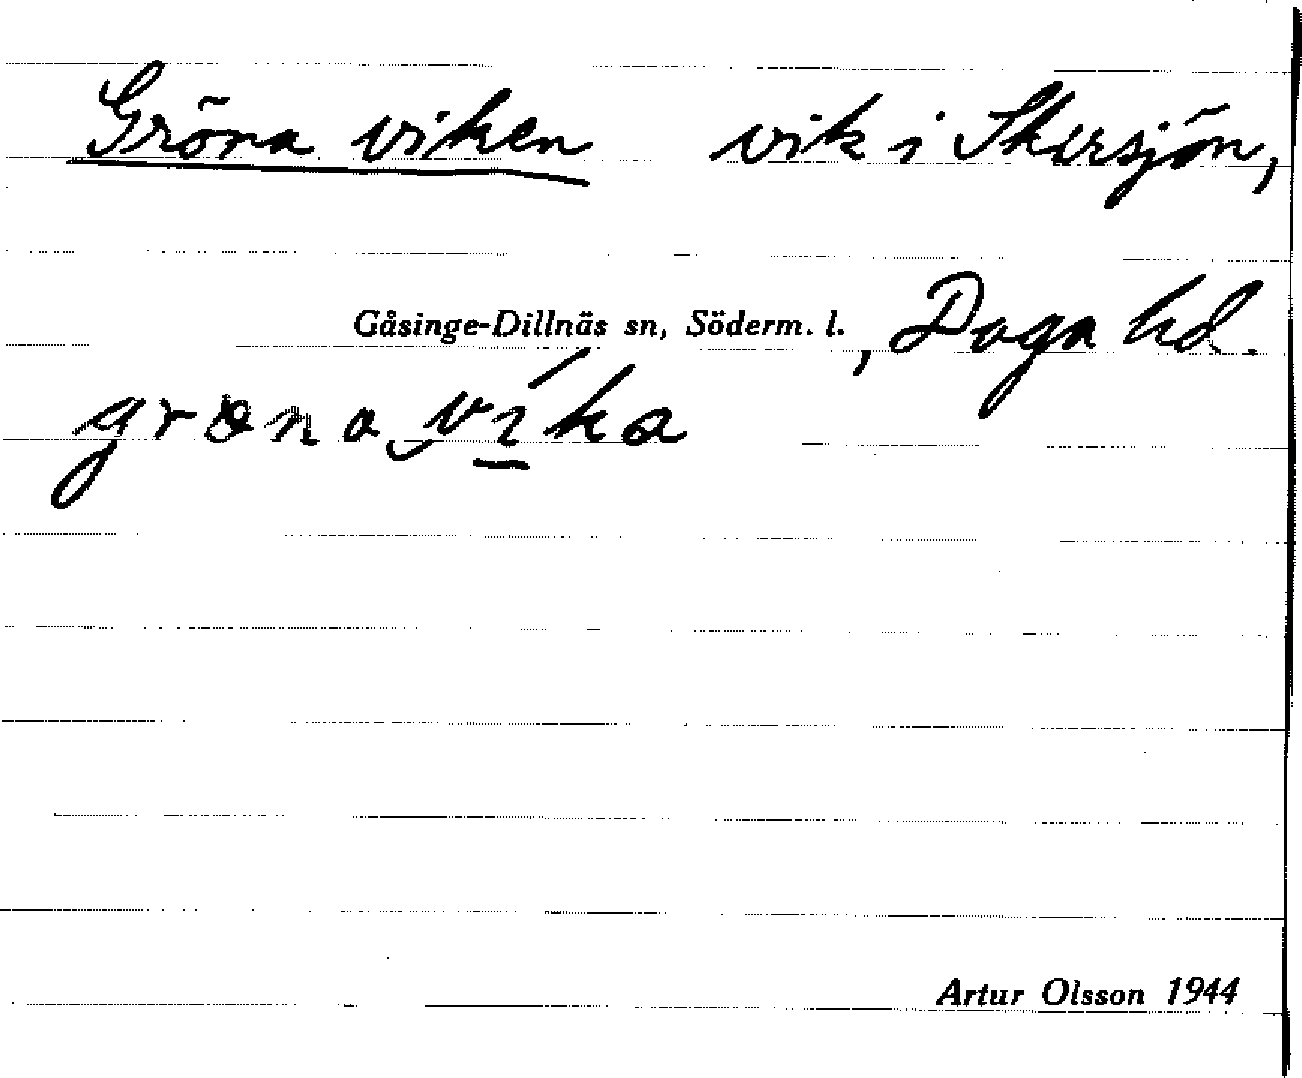 Gröna viken vik i Skirsjön,
Gåsinge-Dillnäs sn, Söderm. l., Daga hd.
grøna víka
Artur Olsson 1944